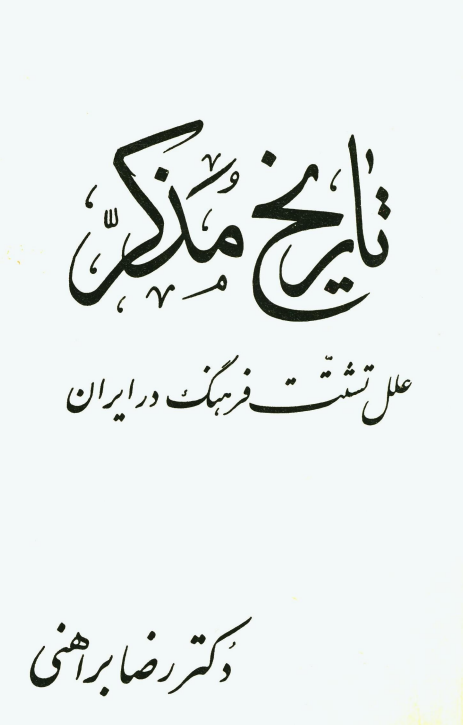 تاریخ مُذکّر
علل تشتّت فرهنگ در ایران
دکتر رضا براهنی